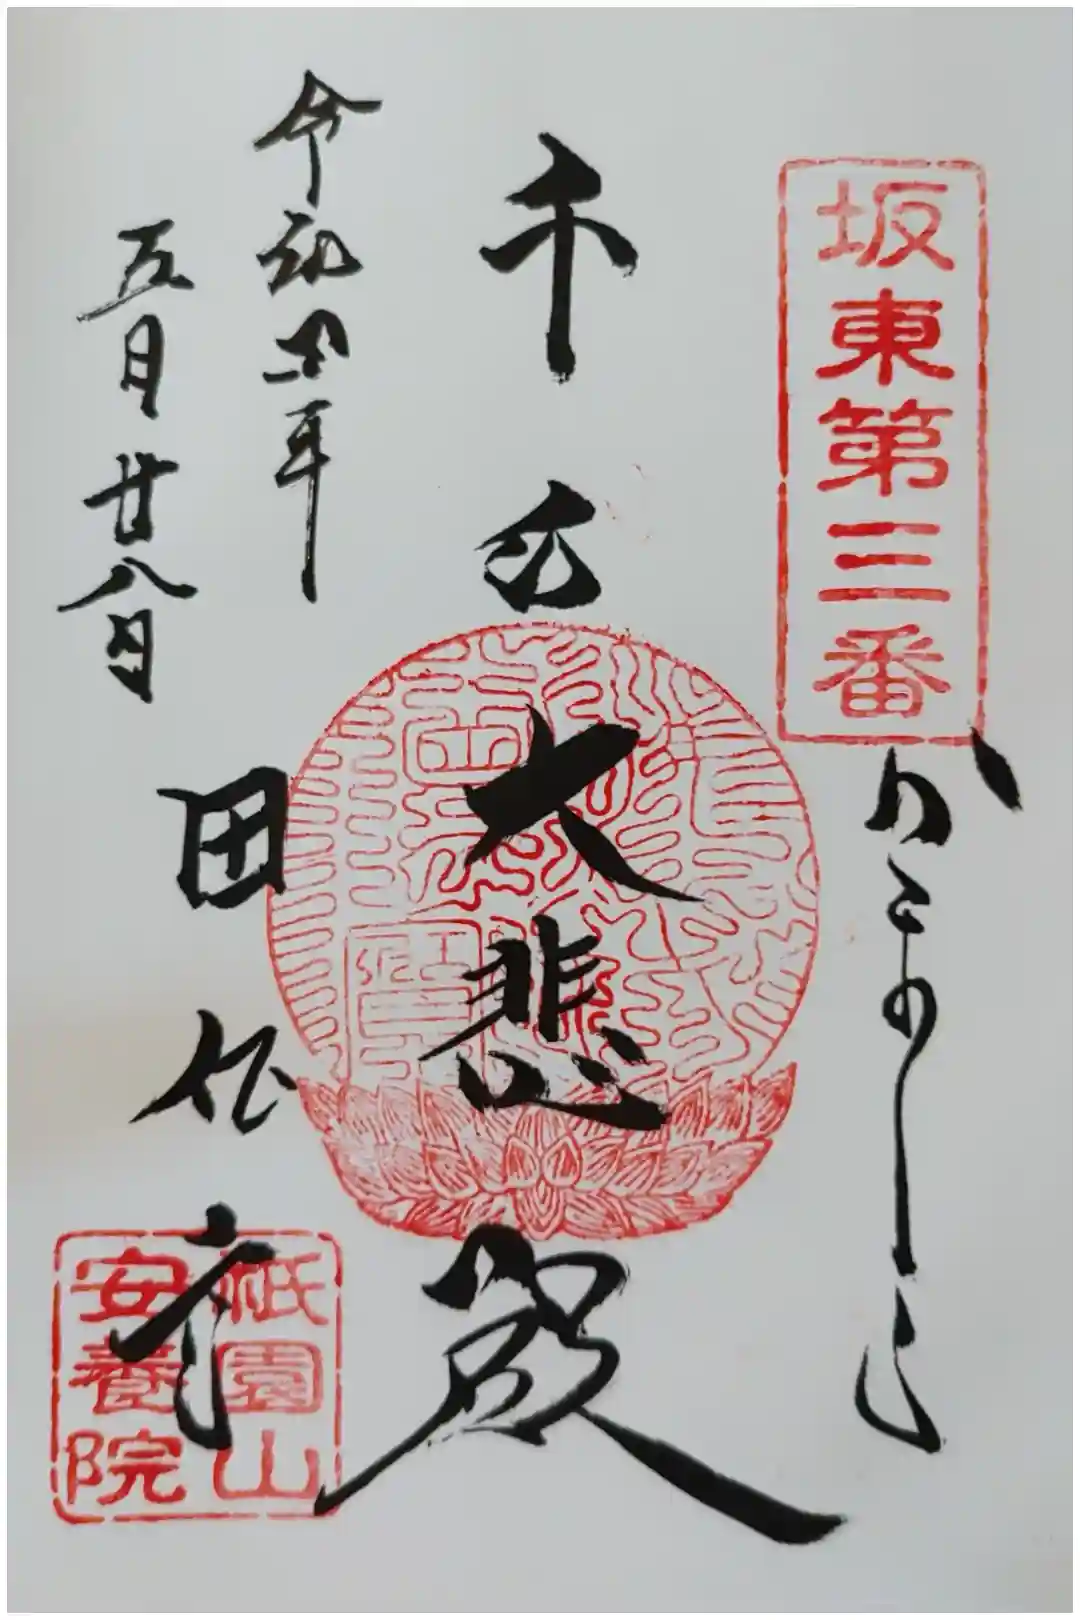 坂東第三番
千手大悲殿
令和四年
五月廿八日
田代寺
祇園山
安養院